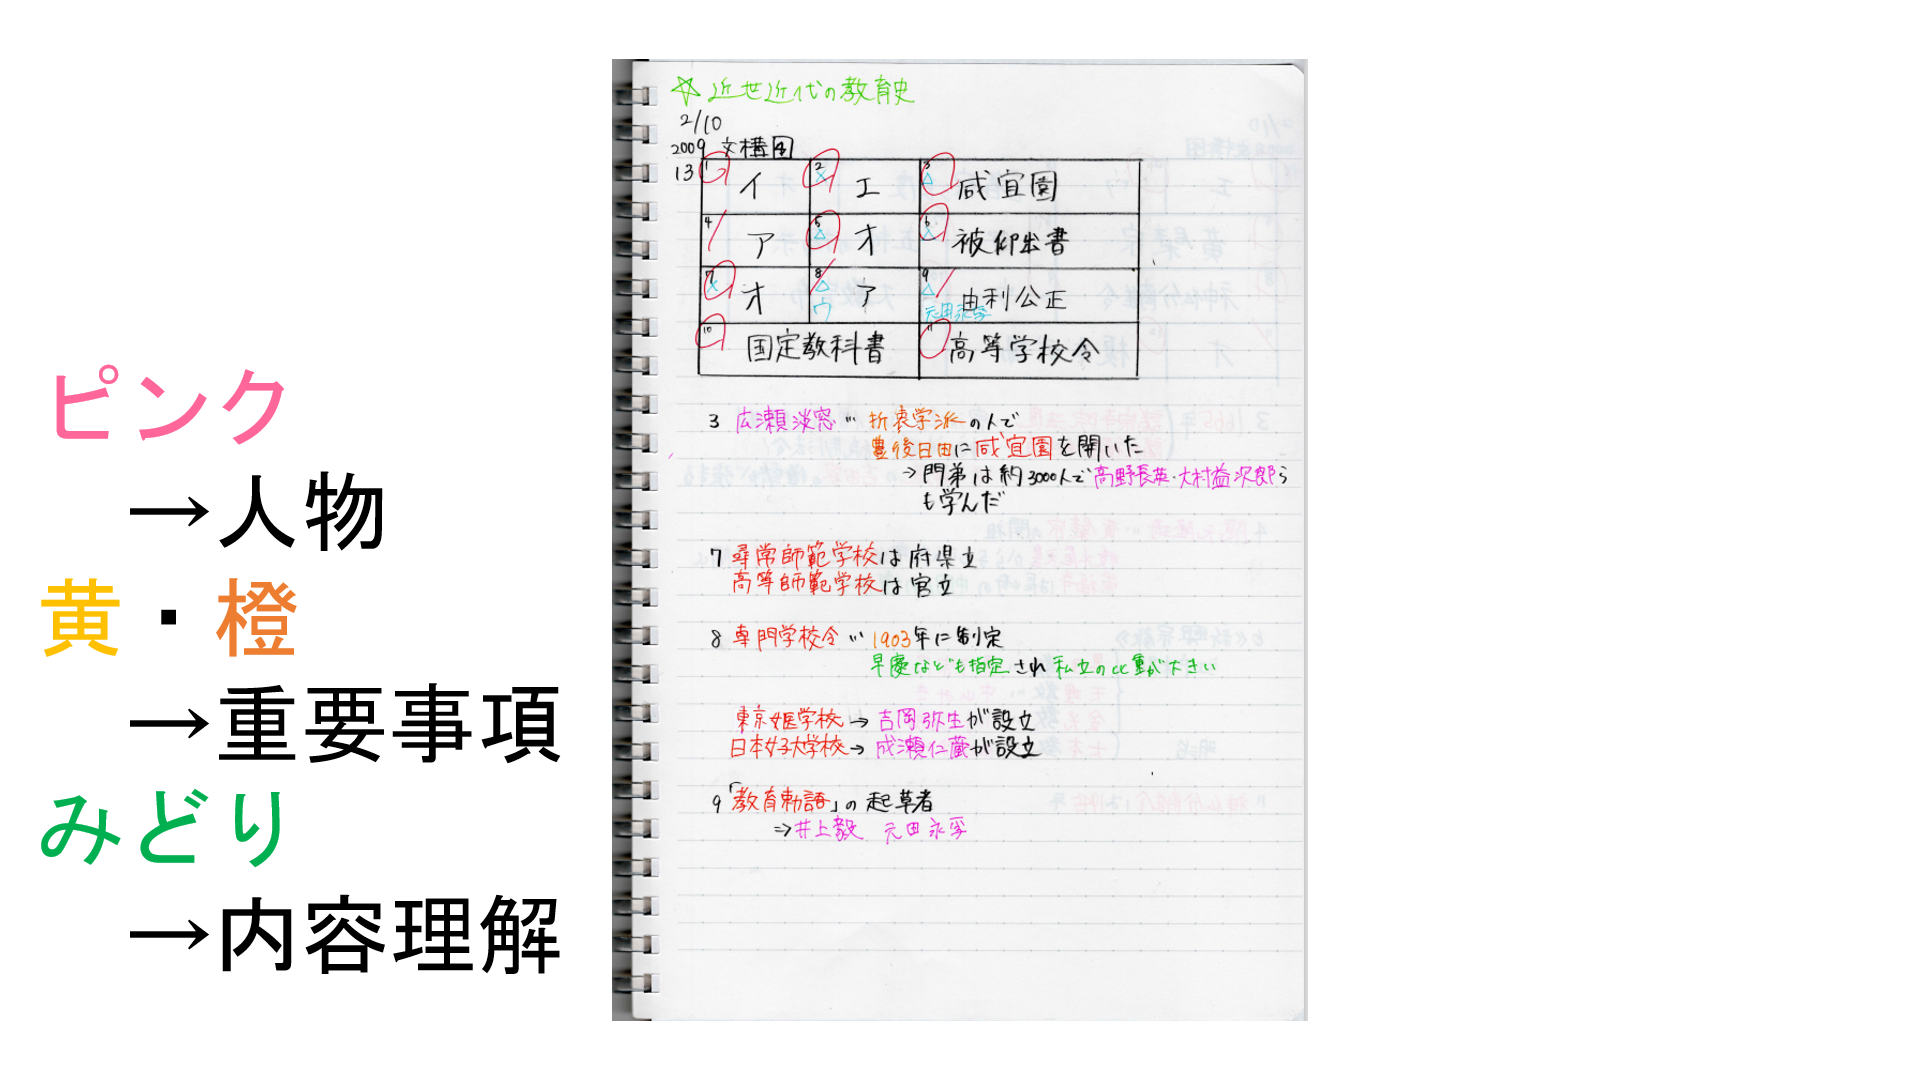 ピンク
→人物
黄・橙
→重要事項
みどり
→内容理解
☆ 近世近代の教育史
2/10
2009 文構④
13
1 イ 2 × エ 3 △ 咸宜園
4 ア 5 △ オ 6 × 被仰出書
7 × オ 8 △ ウ ア 9 △ 元田永孚 由利公正
10 国定教科書 11 高等学校令
3 広瀬淡窓… 折衷学派の人で
豊後日田に咸宜園を開いた
→門弟は約3000人で高野長英・大村益次郎ら
も学んだ
7 尋常師範学校は府県立
高等師範学校は官立
8 専門学校令… 1903年に制定
早慶なども指定され私立の比重が大きい
東京女医学校→吉岡弥生が設立
日本女子大学校→成瀬仁蔵が設立
9「教育勅語」の起草者
⇒井上毅 元田永孚